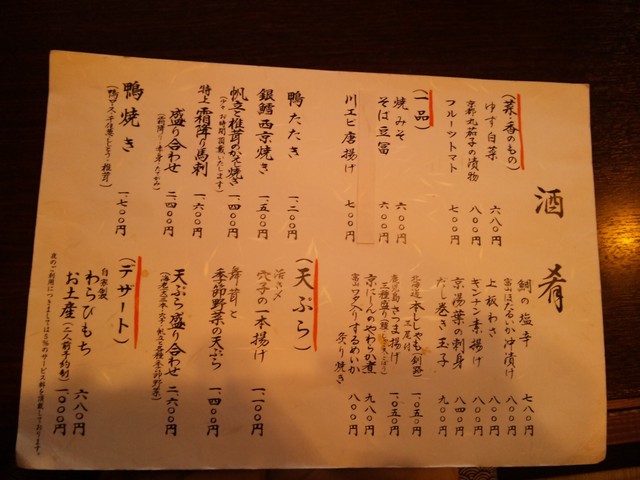 酒肴
鯛の塩辛 七八〇円
富山ほたるいか沖漬け 八〇〇円
上板わさ 八〇〇円
ギンナン素揚げ 八〇〇円
京湯葉の刺身 八四〇円
だし巻き玉子 八〇〇円
北海道 本ししゃも(釧路) 三尾付 一、〇五〇円
鹿児島 さつま揚げ 一、〇五〇円
京にしんのやわらか煮 九八〇円
富山ワタ入りするめいか炙り焼き 八〇〇円
(菜・香のもの)
ゆず白菜 六八〇円
京都丸茄子の漬物 八〇〇円
フルーツトマト 七〇〇円
(一品)
焼みそ 六〇〇円
そば豆冨 六〇〇円
川エビ唐揚げ 七〇〇円
鴨たたき 一、二〇〇円
銀鱈西京焼き 一、五〇〇円
帆立と椎茸のかなぜ焼き 一、四〇〇円
(少々お時間頂戴いたします)
特上霜降り馬刺 一、六〇〇円
盛り合わせ 二、四〇〇円
鴨焼き 一、七〇〇円
(天ぷら)
活〆穴子の一本揚げ 一、一〇〇円
舞茸と季節野菜の天ぷら 一、四〇〇円
天ぷら盛り合わせ 二、六〇〇円
(デザート)
自家製わらびもち 六八〇円
お土産(二人前予約制) 一、〇〇〇円